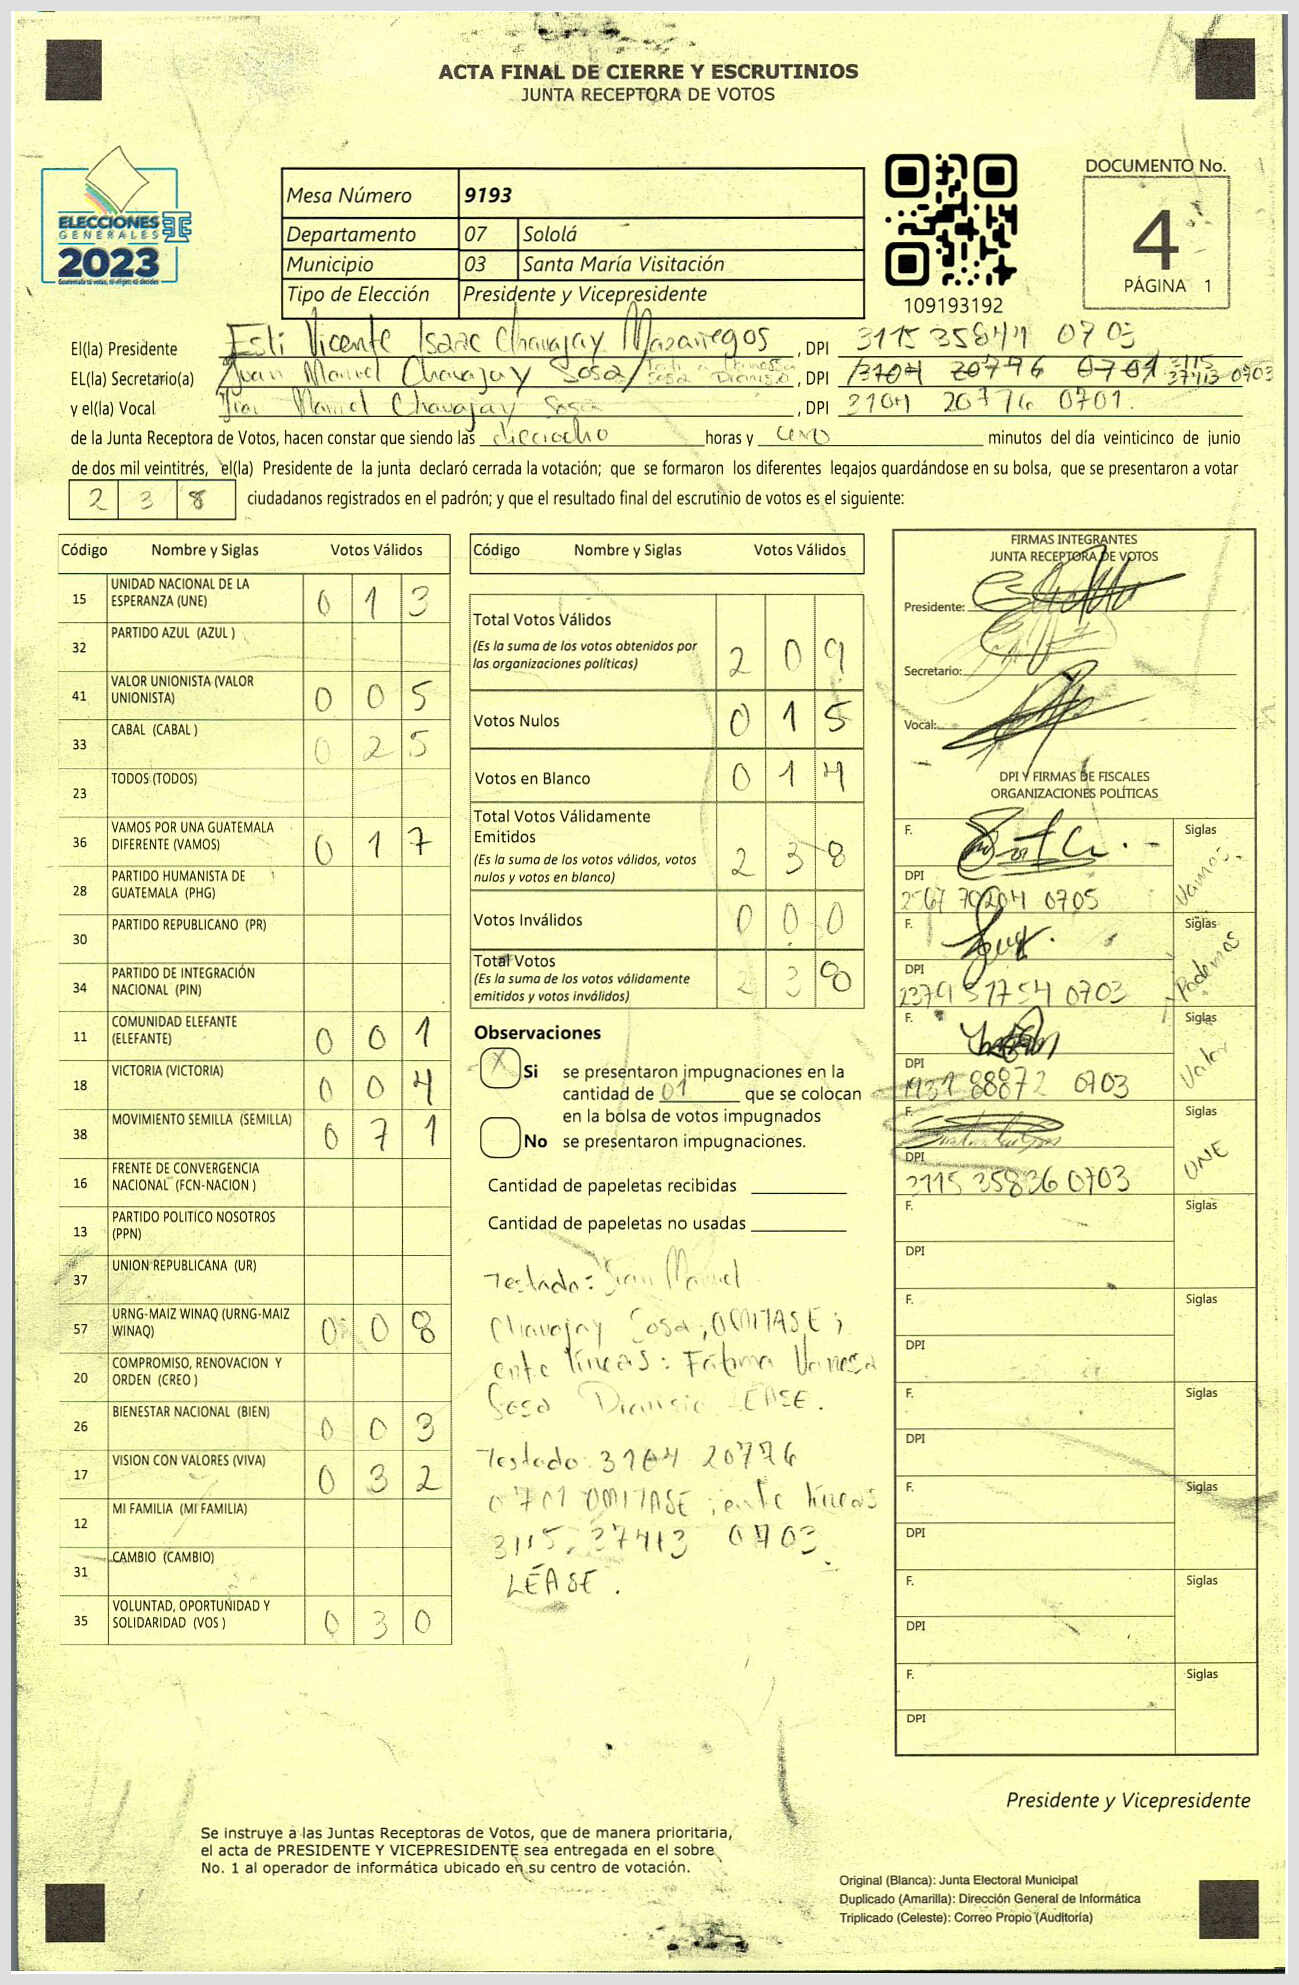 ACTA FINAL DE CIERRE Y ESCRUTINIOS
JUNTA RECEPTORA DE VOTOS
ELECCIONES
GENERALES
2023
Mesa Número 9193
Departamento 07 Sololá
Municipio 03 Santa María Visitación
Tipo de Elección Presidente y Vicepresidente
109193192
DOCUMENTO No.
4
PÁGINA 1
El(la) Presidente Esli Vicente Isaac Chavajay Mazariegos , DPI 3115 35844 0703
EL(la) Secretario(a) Juan Manuel Chavajay Sosa / Fátima Vanessa Sosa Dionisio , DPI 3104 20776 0701 3115 37413 0703
y el(la) Vocal Juan Manuel Chavajay Sosa , DPI 3104 20776 0701.
de la Junta Receptora de Votos, hacen constar que siendo las dieciocho horas y cero minutos del día veinticinco de junio
de dos mil veintitrés, el(la) Presidente de la junta declaró cerrada la votación; que se formaron los diferentes legajos guardándose en su bolsa, que se presentaron a votar
2 3 8 ciudadanos registrados en el padrón; y que el resultado final del escrutinio de votos es el siguiente:
Código Nombre y Siglas Votos Válidos
15 UNIDAD NACIONAL DE LA ESPERANZA (UNE) 0 1 3
32 PARTIDO AZUL (AZUL )
41 VALOR UNIONISTA (VALOR UNIONISTA) 0 0 5
33 CABAL (CABAL ) 0 2 5
23 TODOS (TODOS)
36 VAMOS POR UNA GUATEMALA DIFERENTE (VAMOS) 0 1 7
28 PARTIDO HUMANISTA DE GUATEMALA (PHG)
30 PARTIDO REPUBLICANO (PR)
34 PARTIDO DE INTEGRACIÓN NACIONAL (PIN)
11 COMUNIDAD ELEFANTE (ELEFANTE) 0 0 1
18 VICTORIA (VICTORIA) 0 0 4
38 MOVIMIENTO SEMILLA (SEMILLA) 0 7 1
16 FRENTE DE CONVERGENCIA NACIONAL (FCN-NACION )
13 PARTIDO POLITICO NOSOTROS (PPN)
37 UNION REPUBLICANA (UR)
57 URNG-MAIZ WINAQ (URNG-MAIZ WINAQ) 0 0 8
20 COMPROMISO, RENOVACION Y ORDEN (CREO )
26 BIENESTAR NACIONAL (BIEN) 0 0 3
17 VISION CON VALORES (VIVA) 0 3 2
12 MI FAMILIA (MI FAMILIA)
31 CAMBIO (CAMBIO)
35 VOLUNTAD, OPORTUNIDAD Y SOLIDARIDAD (VOS ) 0 3 0
Código Nombre y Siglas Votos Válidos
Total Votos Válidos
(Es la suma de los votos obtenidos por
las organizaciones políticas) 2 0 9
Votos Nulos 0 1 5
Votos en Blanco 0 1 4
Total Votos Válidamente
Emitidos
(Es la suma de los votos válidos, votos
nulos y votos en blanco) 2 3 8
Votos Inválidos 0 0 0
Total Votos
(Es la suma de los votos válidamente
emitidos y votos inválidos) 2 3 8
Observaciones
X Si se presentaron impugnaciones en la
cantidad de 01 que se colocan
en la bolsa de votos impugnados
No se presentaron impugnaciones.
Cantidad de papeletas recibidas
Cantidad de papeletas no usadas
Testado: Juan Manuel
Chavajay Sosa, OMITASE;
ente líneas: Fátima Vanessa
Sosa Dionisio LEASE.
Testado: 3104 20776
0701 OMITASE; ente líneas
3115 37413 0703
LÉASE.
FIRMAS INTEGRANTES
JUNTA RECEPTORA DE VOTOS
Presidente:
Secretario:
Vocal:
DPI Y FIRMAS DE FISCALES
ORGANIZACIONES POLÍTICAS
F. Siglas Vamos.
DPI
2567 70204 0705
F. Siglas Podemos
DPI
2379 51754 0703
F. Siglas Valor
DPI
1931 88872 0703
F. Siglas UNE
DPI
3115 35836 0703
F. Siglas
DPI
F. Siglas
DPI
F. Siglas
DPI
F. Siglas
DPI
F. Siglas
DPI
F. Siglas
DPI
Presidente y Vicepresidente
Se instruye a las Juntas Receptoras de Votos, que de manera prioritaria,
el acta de PRESIDENTE Y VICEPRESIDENTE sea entregada en el sobre
No. 1 al operador de informática ubicado en su centro de votación.
Original (Blanca): Junta Electoral Municipal
Duplicado (Amarilla): Dirección General de Informática
Triplicado (Celeste): Correo Propio (Auditoría)